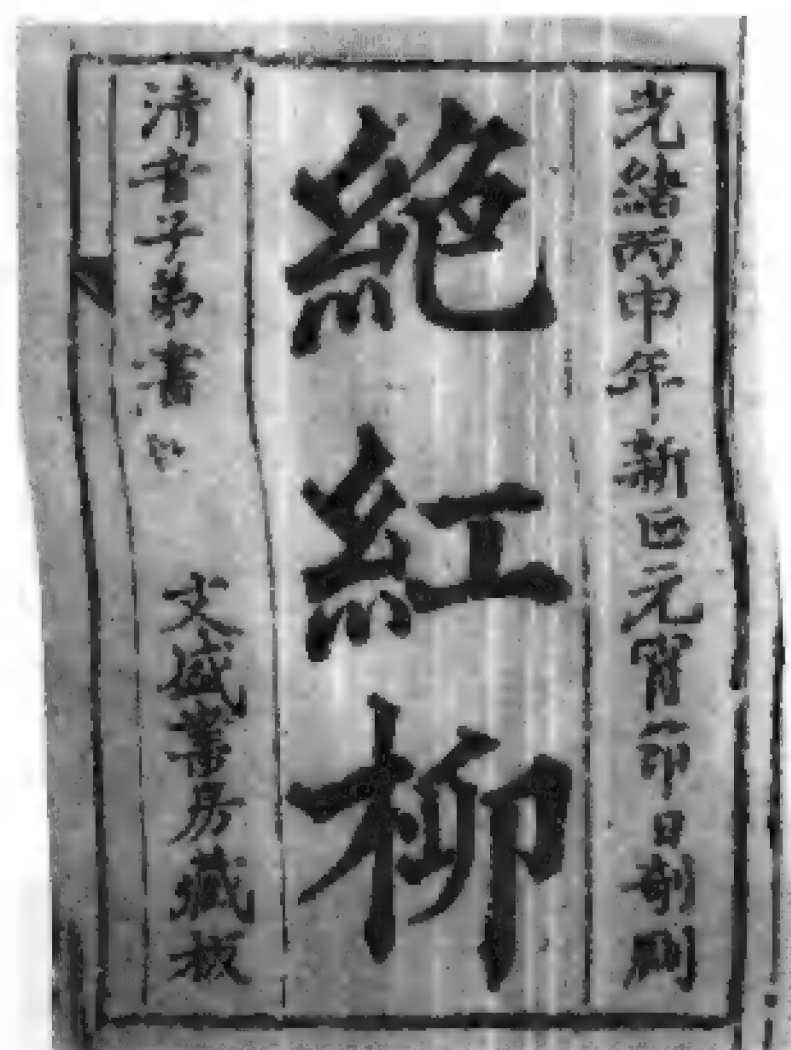 光緒丙申年新正元宵節日刻
絕紅柳
清音子弟書
文盛書房藏板